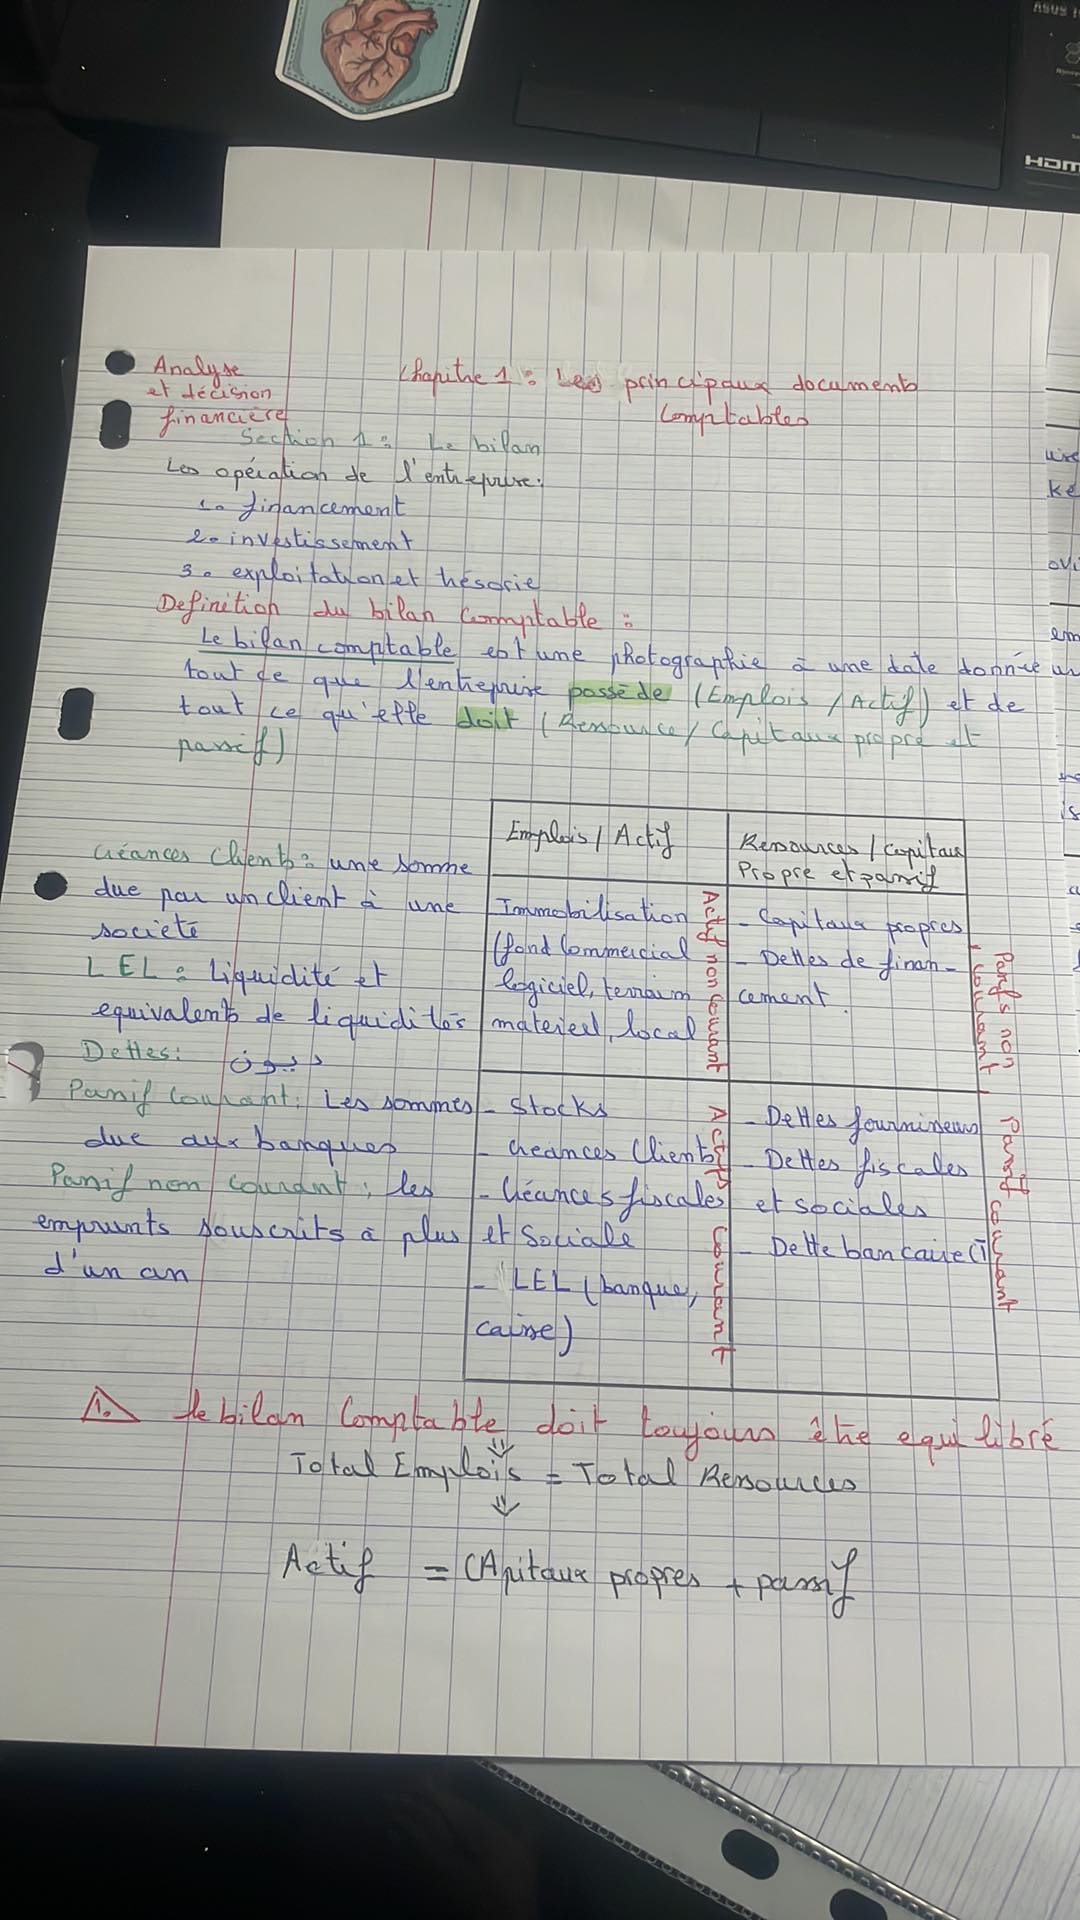 ASUS
HDMI
Analyse
et décision
financière
Chapitre 1 : Les principaux documents
Comptables
Section 1 : Le bilan
Les opération de l'entreprise:
1. financement
2. investissement
3. exploitation et trésorie
Definition du bilan Comptable :
Le bilan comptable est une photographie à une date donnée
tout ce que l'entreprise possède (Emplois / Actif) et de
tout ce qu'elle doit (Ressource / Capitaux propre et
passif)
Emplois / Actif
Ressources / Capitaux
Propre et passif
Créances Clients : une somme
due par un client à une
societé
LEL : Liquidité et
equivalents de liquidités
Dettes: ديون
Passif Courant: Les sommes
due aux banques
Passif non courant : les
emprunts souscrits à plus
d'un an
Immobilisation
(fond Commercial
logiciel, terrain
materiel, local
Actif non Courant
- Capitaux propres
- Dettes de finan-
cement
Passifs non
Courant
- Stocks
- Créances Clients
- Créances fiscales
et Sociale
- LEL (banque,
caisse)
Actifs Courant
- Dettes fournisseurs
- Dettes fiscales
et sociales
- Dette bancaire
Passif Courant
Le bilan Comptable doit toujours être equilibré
Total Emplois = Total Ressources
Actif = CApitaux propres + passif